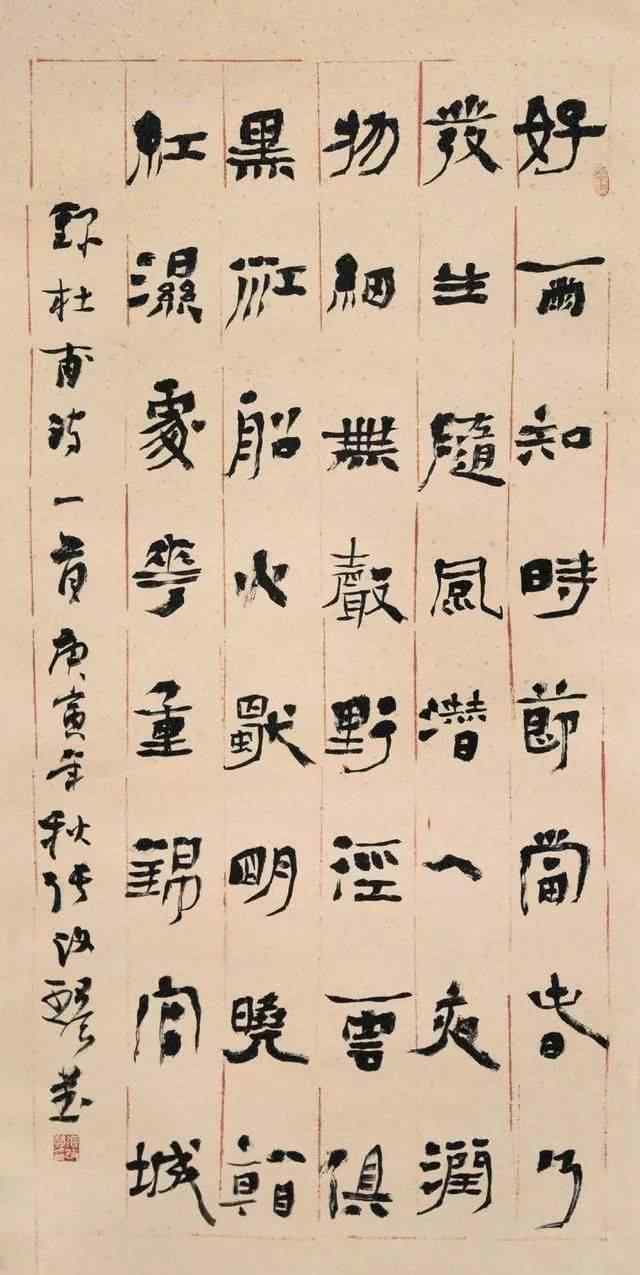 好雨知時節當春乃
發生隨風潛入夜潤
物細無聲野徑雲俱
黑江船火獨明曉看
紅濕處花重錦官城
録杜甫詩一首庚寅年秋張改琴書